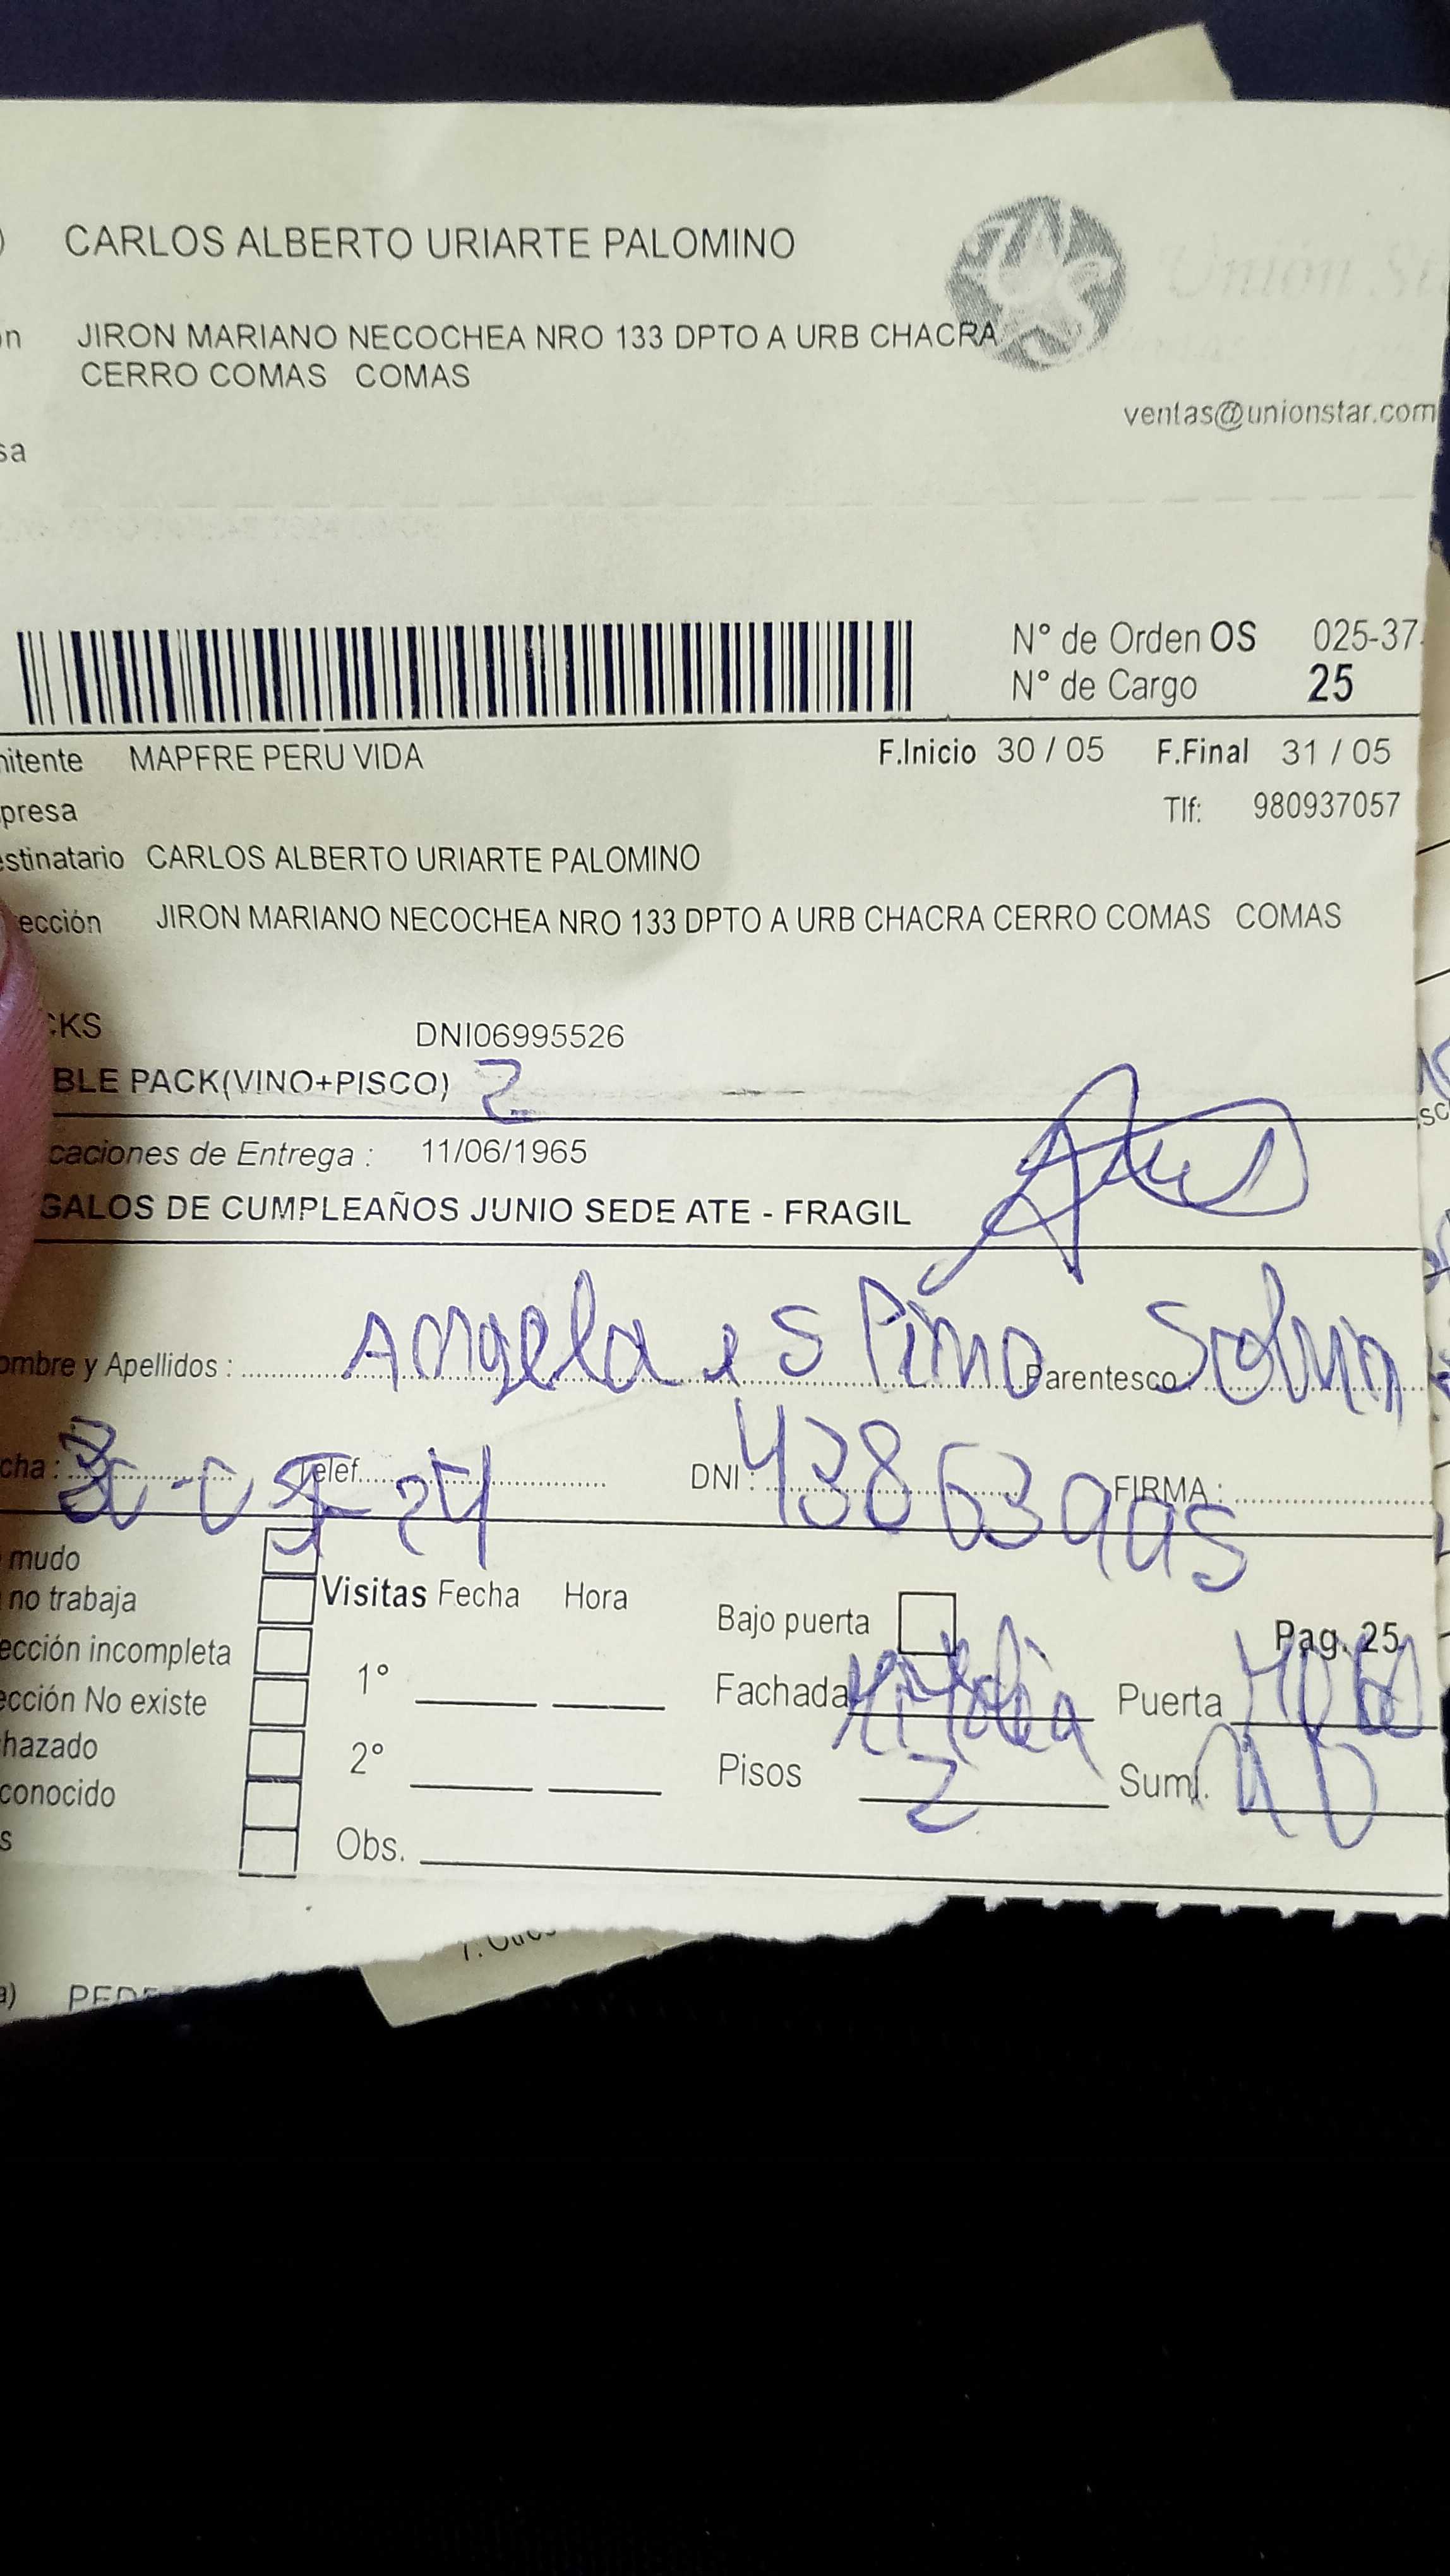 ) CARLOS ALBERTO URIARTE PALOMINO
Unión St
ón JIRON MARIANO NECOCHEA NRO 133 DPTO A URB CHACRA
CERRO COMAS COMAS
ventas@unionstar.com
sa
N° de Orden OS 025-37
N° de Cargo 25
mitente MAPFRE PERU VIDA F.Inicio 30 / 05 F.Final 31 / 05
presa Tlf: 980937057
estinatario CARLOS ALBERTO URIARTE PALOMINO
ección JIRON MARIANO NECOCHEA NRO 133 DPTO A URB CHACRA CERRO COMAS COMAS
CKS DNI06995526
BLE PACK(VINO+PISCO) 2
caciones de Entrega : 11/06/1965
GALOS DE CUMPLEAÑOS JUNIO SEDE ATE - FRAGIL
ombre y Apellidos : Angela esPino Parentesco :
cha : 30-05-24 Telef. DNI : 43863995 FIRMA :
mudo
no trabaja Visitas Fecha Hora Bajo puerta Pag. 25
ección incompleta
ección No existe 1° Fachada Puerta
hazado
conocido 2° Pisos 2 Sumi.
s Obs.
7. Otros
a)